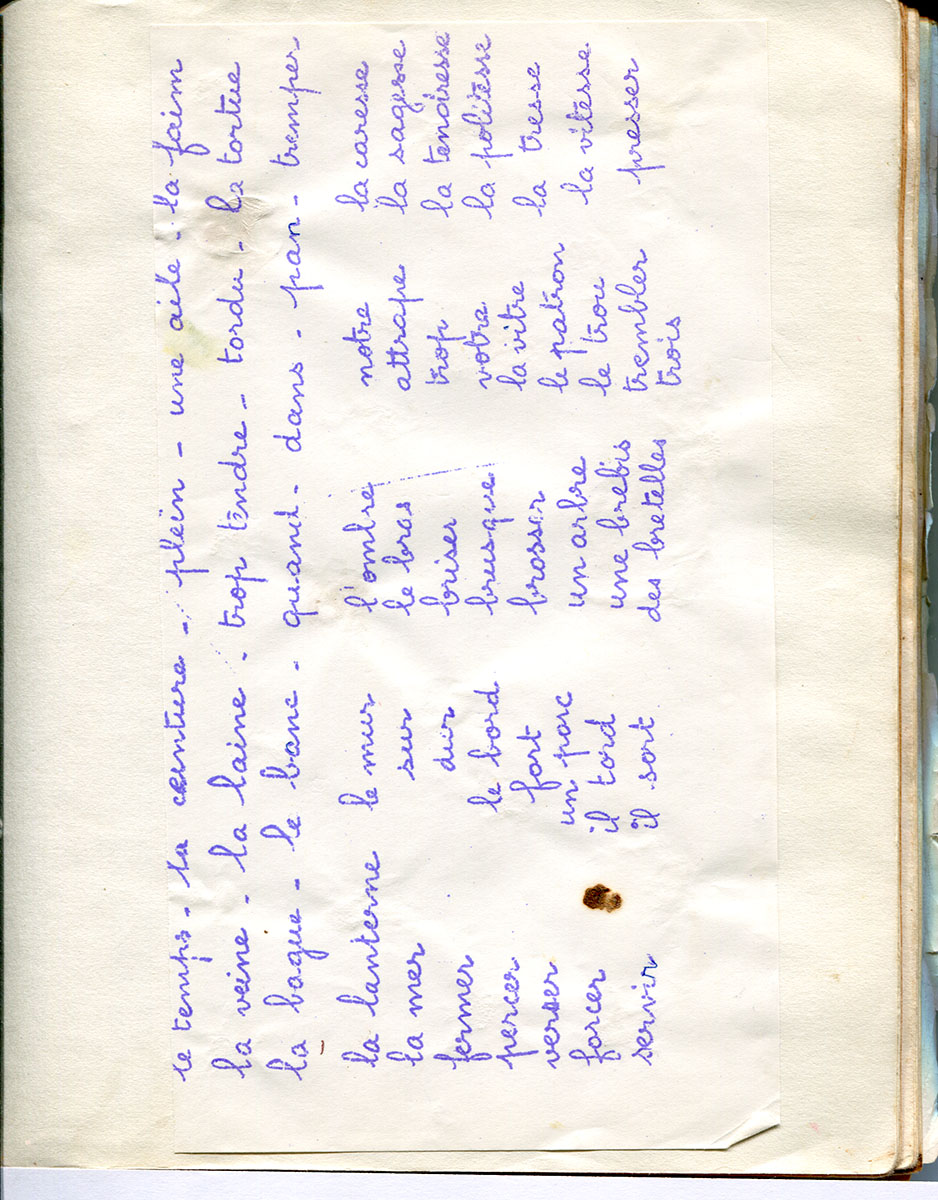 le temps - la ceinture - plein - une aile - la faim
la veine - la laine - trop tendre - tordu - la tortue
la bague - le banc - quand - dans - pan - tremper
la lanterne
la mer
fermer
percer
verser
forcer
servir
le mur
sur
dur
le bord
fort
un porc
il tord
il sort
l'ombre
le bras
briser
brusque
brosser
un arbre
une brebis
des bretelles
notre
attrape
trop
votre
la vitre
le patron
le trou
trembler
trois
la caresse
la sagesse
la tendresse
la politesse
la tresse
la vitesse
presser